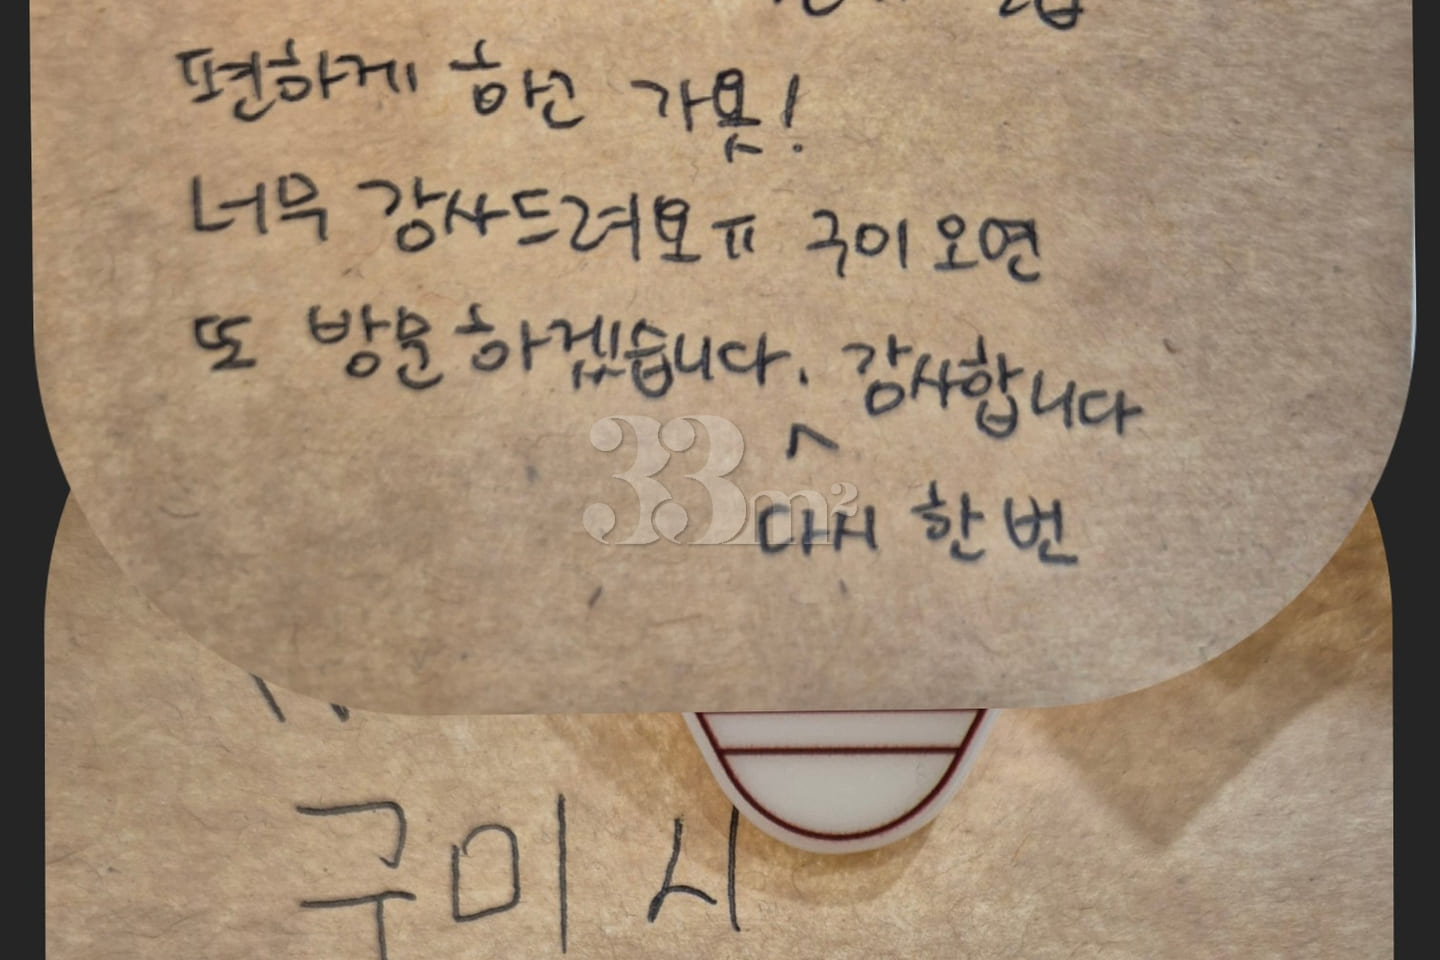 편하게 하고 가욧!
너무 감사드려요ㅠ 구미 오면
또 방문하겠습니다. 감사합니다
^
다시 한 번
33m²
구미 시